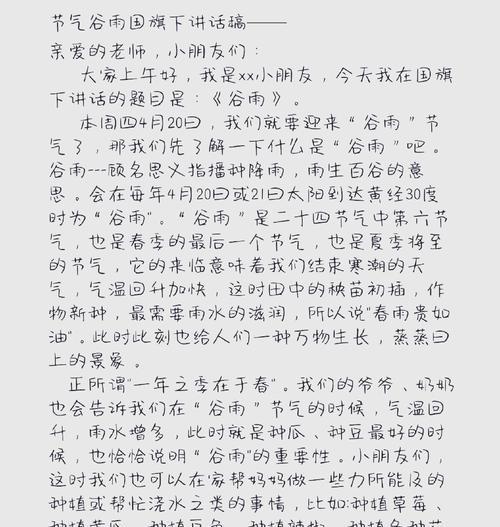 节气谷雨国旗下讲话稿——
亲爱的老师，小朋友们：
大家上午好，我是xx小朋友，今天我在国旗
下讲话的题目是：《谷雨》。
本周四4月20日，我们就要迎来“谷雨”节
气了，那我们先了解一下什么是“谷雨”吧。
谷雨---顾名思义指播种降雨，雨生百谷的意
思。会在每年4月20日或21日太阳到达黄经30度
时为“谷雨”。“谷雨”是二十四节气中第六节
气，也是春季的最后一个节气，也是夏季将至
的节气，它的来临意味着我们结束寒潮的天
气，气温回升加快，这时田中的秧苗初插，作
物新种，最需要雨水的滋润，所以说“春雨贵如
油”。此时此刻也给人们一种万物生长，蒸蒸日
上的景象。
正所谓“一年之季在于春”。我们的爷爷、奶奶
也会告诉我们在“谷雨”节气的时候，气温回
升，雨水增多，此时就是种瓜、种豆最好的时
候，也恰恰说明“谷雨”的重要性。小朋友们，
这时我们也可以在家帮妈妈做一些力所能及的
种植或帮忙浇水之类的事情，比如:种植草莓、